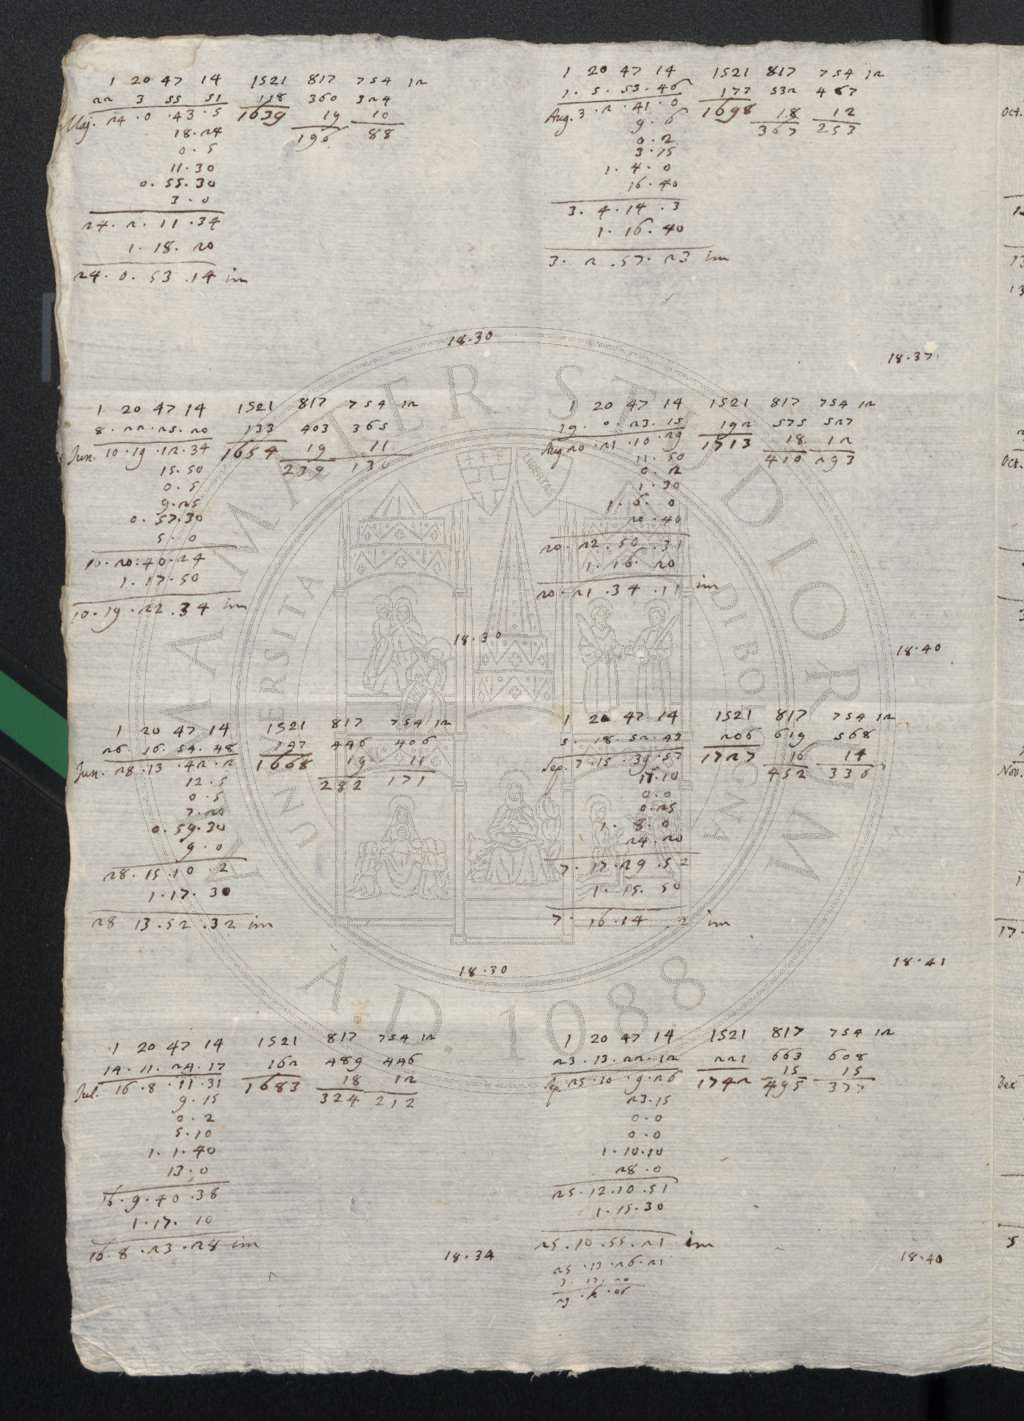 1 20 47 14 1521 817 754 12
22 3 55 51 118 360 324
Maj. 24.0.43.5 1639 19 10
18.24 196 88
0.5
11.30
0.55.30
3.0
24.2.11.34
1.18.20
24.0.53.14 im
18.30
1 20 47 14 1521 817 754 12
8.22.25.20 133 403 365
Jun. 10.19.12.34 1654 19 11
15.50 239 130
0.5
9.25
0.57.30
5.0
10.20.40.24
1.17.50
10.19.22.34 im
18.30
1 20 47 14 1521 817 754 12
26 16 54.48 147 446 406
Jun. 28.13.42.2 1668 19 11
12.5 282 171
0.5
7.20
0.59.30
9.0
28.15.10 2
1.17.30
28 13.52.32 im
18.30
1 20 47 14 1521 817 754 12
14.11.24.17 162 489 446
Jul. 16.8.11.31 1683 18 12
9.15 324 212
0.2
5.10
1.1.40
13.0
16.9.40.38
1.17.10
16.8.23.28 im
18.34
1 20 47 14 1521 817 754 12
1.5.53.46 177 532 487
Aug. 3.2.41.0 1698 18 12
9.6 367 253
0.2
3.15
1.4.0
16.40
3.4.14.3
1.16.40
3.2.57.23 im
18.37
1 20 47 14 1521 817 754 12
19.0.23.15 192 575 527
Aug. 20.21.10.29 1713 18 12
11.50 410 293
0.2
1.30
1.6.0
20.40
20.22.50.31
1.16.20
20.21.34.11 im
18.40
1 20 47 14 1521 817 754 12
5.18.52.43 206 619 568
Sep. 7.15.39.57 1727 16 14
17.10 452 336
0.0
0.25
1.8.0
24.20
7.17.29.52
1.15.50
7.16.14.2 im
18.41
1 20 47 14 1521 817 754 12
23.13.22.12 221 663 608
Sep. 25.10.9.26 1742 15 15
23.15 495 377
0.0
0.0
1.10.10
28.0
25.12.10.51
1.15.30
25.10.55.21 im
18.40
25.13.26.21
Oct.
Oct.
Nov.
Dec
ALMA MATER STUDIORUM
UNIVERSITA DI BOLOGNA
A.D. 1088